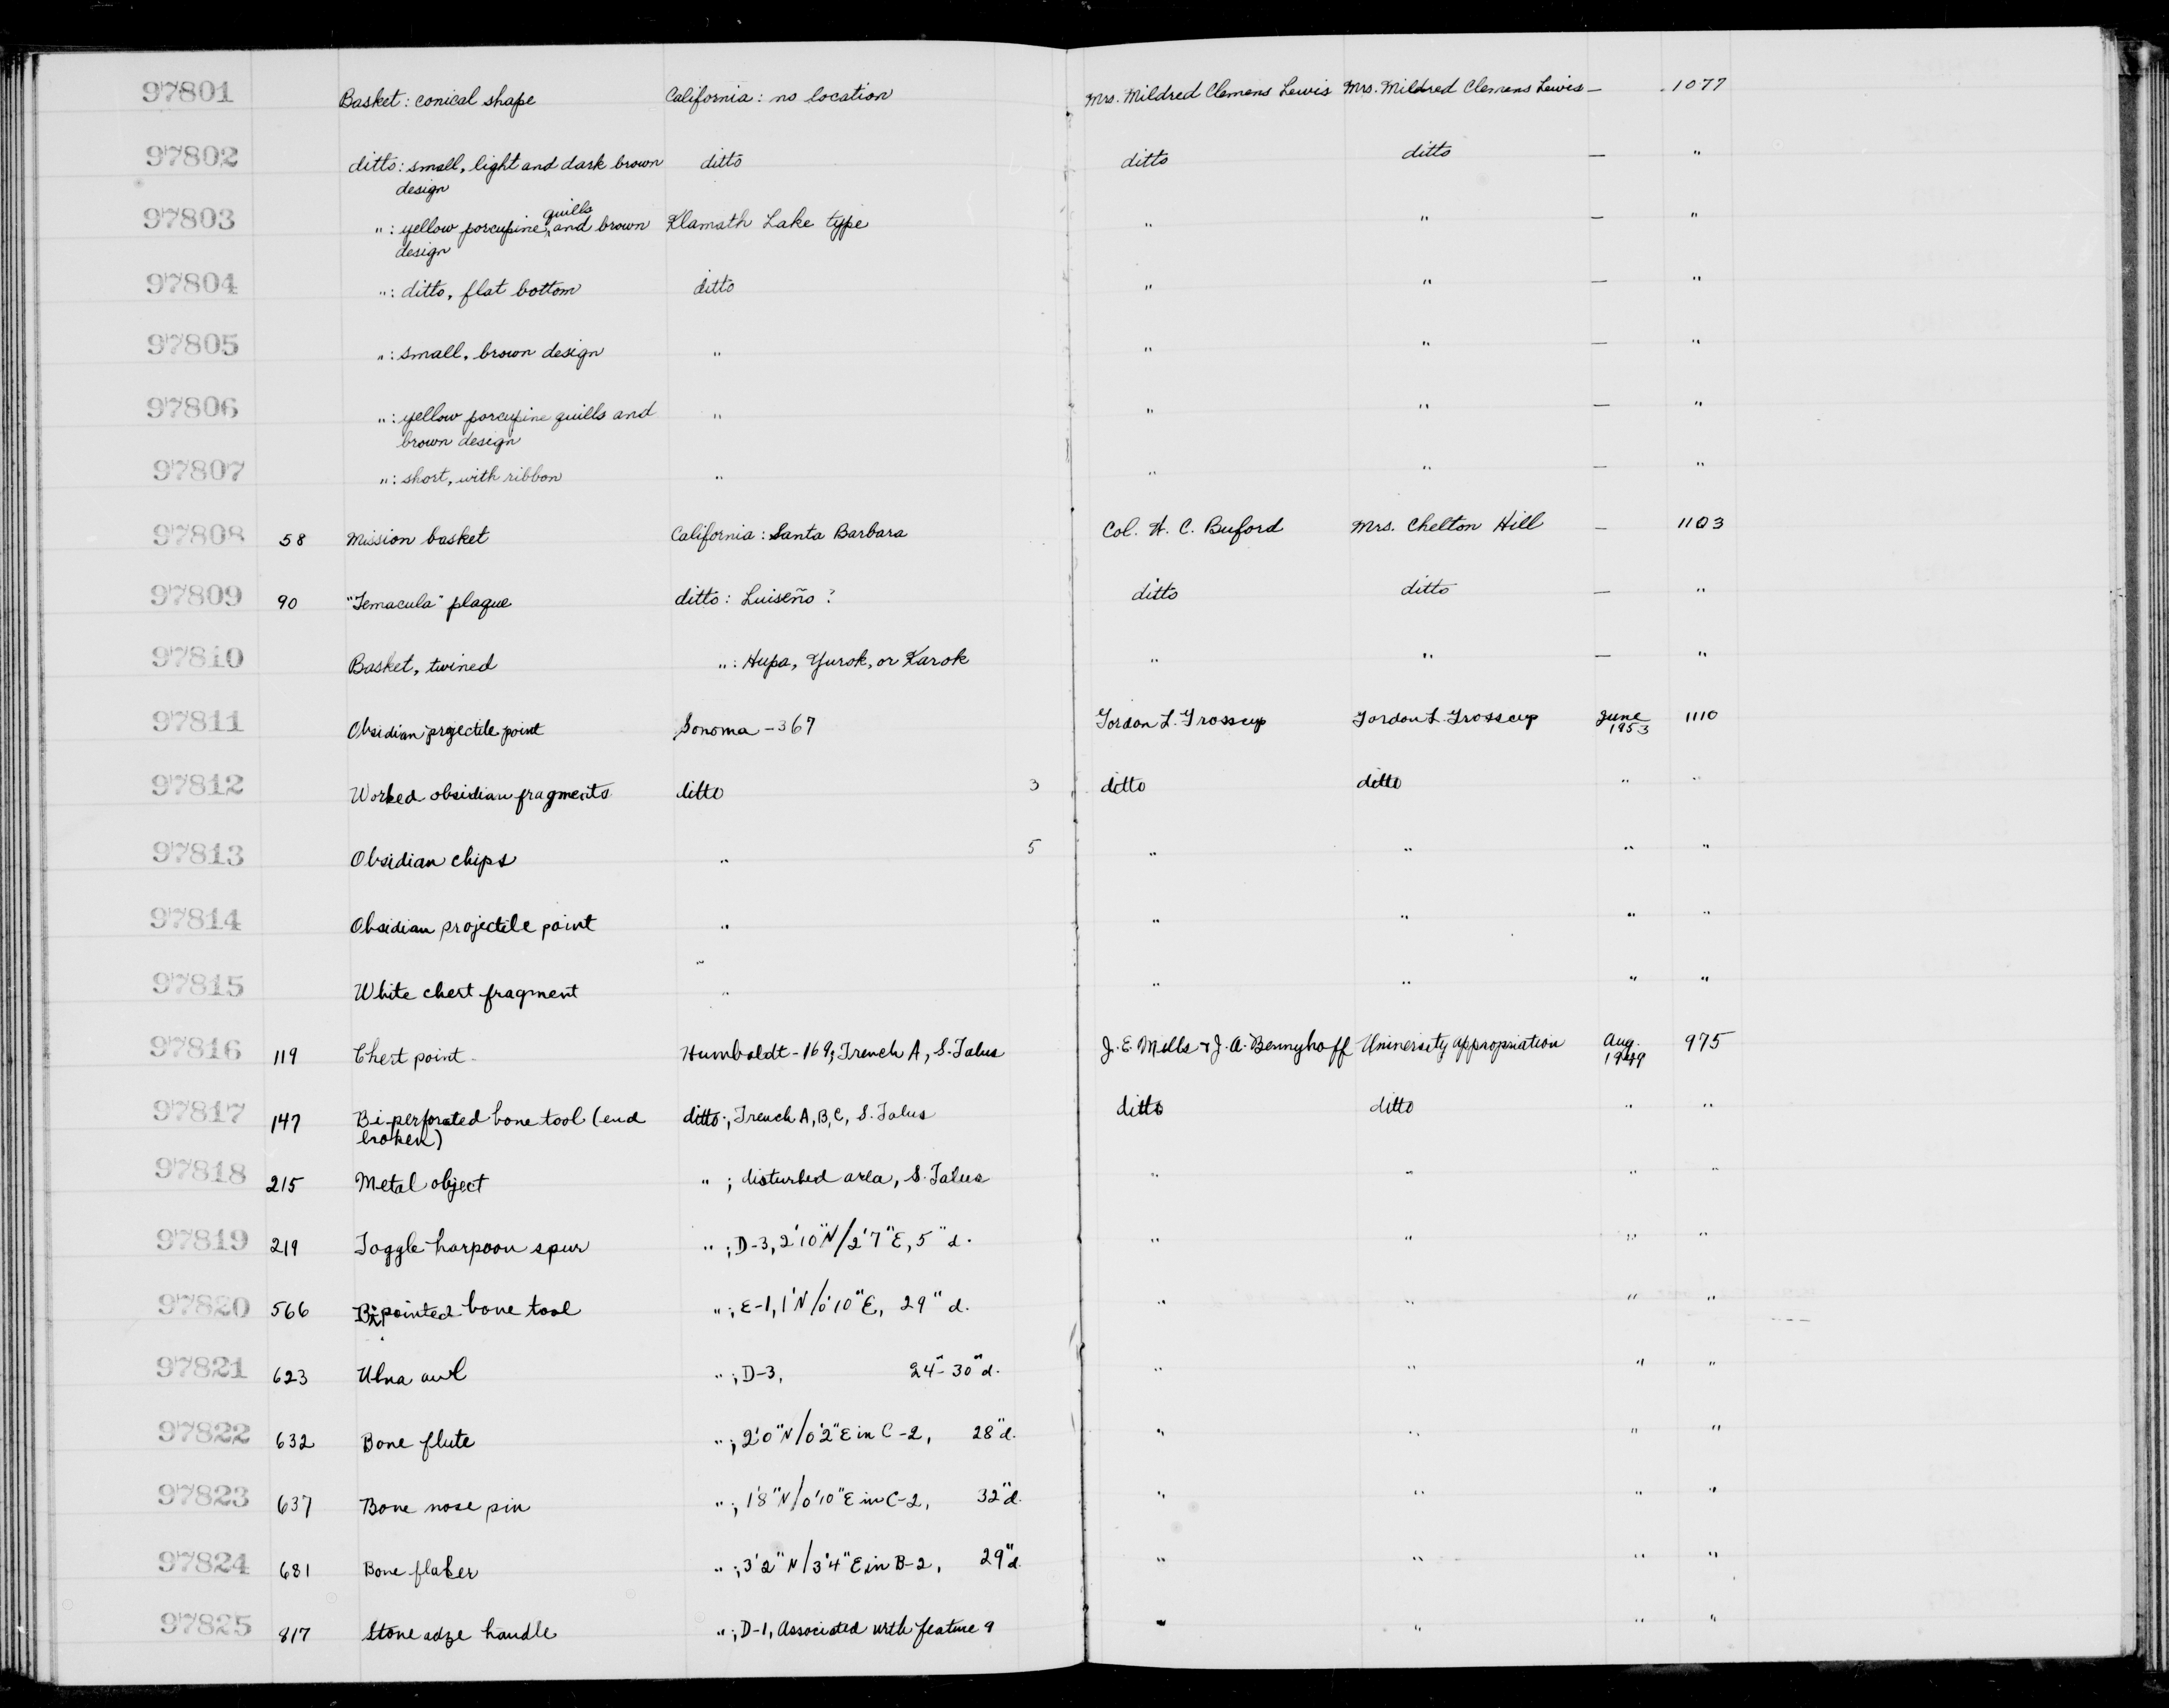 97801 Basket: conical shape California: no location Mrs. Mildred Clemens Lewis Mrs. Mildred Clemens Lewis — 1077
97802 ditto: small, light and dark brown ditto ditto ditto — "
design
quills
97803 ": yellow porcupine and brown Klamath Lake type " " — "
design
97804 ": ditto, flat bottom ditto " " — "
97805 ": small, brown design " " " — "
97806 ": yellow porcupine quills and " " " — "
brown design
97807 ": short, with ribbon " " " — "
97808 58 Mission basket California: Santa Barbara Col. H. C. Buford Mrs. Chelton Hill — 1103
97809 90 "Temacula" plaque ditto: Luiseño? ditto ditto — "
97810 Basket, twined ": Hupa, Yurok, or Karok " " — "
97811 Obsidian projectile point Sonoma-367 Gordon L. Grosscup Gordon L. Grosscup June 1110
1953
97812 Worked obsidian fragments ditto 3 ditto ditto " "
97813 Obsidian chips " 5 " " " "
97814 Obsidian projectile point " " " " "
97815 White chert fragment " " " " "
97816 119 Chert point Humboldt-169; Trench A, S. Talus J. E. Mills + J. A. Bennyhoff University appropriation Aug. 975
1949
97817 147 Bi-perforated bone tool (end ditto; Trench A, B, C, S. Talus ditto ditto " "
broken)
97818 215 Metal object "; disturbed area, S. Talus " " " "
97819 219 Toggle harpoon spur "; D-3, 2'10"N/2'7"E, 5"d. " " " "
97820 566 Bi-pointed bone tool "; E-1, 1'N/0'10"E, 29"d. " " " "
97821 623 Ulna awl "; D-3, 24"-30"d. " " " "
97822 632 Bone flute "; 2'0"N/0'2"E in C-2, 28"d. " " " "
97823 637 Bone nose pin "; 1'8"N/0'10"E in C-2, 32"d. " " " "
97824 681 Bone flaker "; 3'2"N/3'4"E in B-2, 29"d. " " " "
97825 817 Stone adze handle "; D-1, Associated with feature 9 " " " "